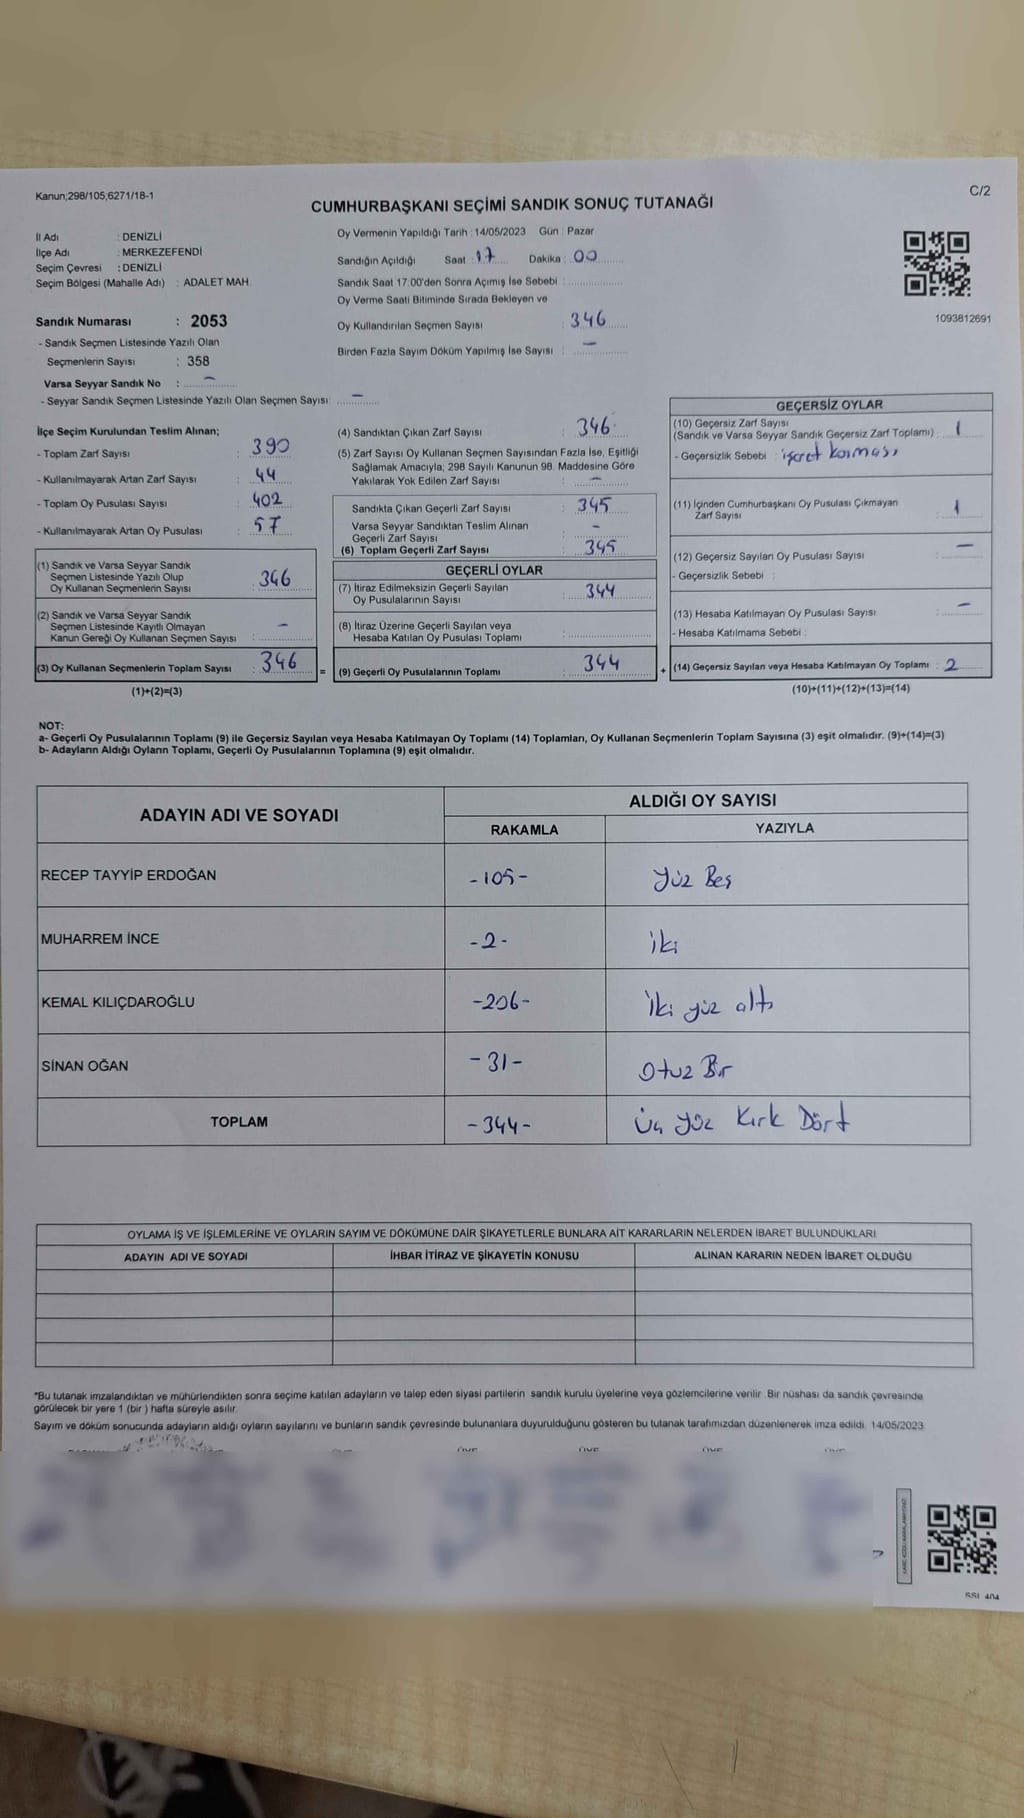 Kanun;298/105;6271/18-1
C/2
CUMHURBAŞKANI SEÇİMİ SANDIK SONUÇ TUTANAĞI
İl Adı : DENİZLİ
İlçe Adı : MERKEZEFENDİ
Seçim Çevresi : DENİZLİ
Seçim Bölgesi (Mahalle Adı) : ADALET MAH.
Sandık Numarası : 2053
- Sandık Seçmen Listesinde Yazılı Olan
Seçmenlerin Sayısı : 358
Varsa Seyyar Sandık No : –
- Seyyar Sandık Seçmen Listesinde Yazılı Olan Seçmen Sayısı: –
Oy Vermenin Yapıldığı Tarih : 14/05/2023 Gün : Pazar
Sandığın Açıldığı Saat : 17 Dakika : 00
Sandık Saat 17:00'den Sonra Açımış İse Sebebi :
Oy Verme Saati Bitiminde Sırada Bekleyen ve
Oy Kullandırılan Seçmen Sayısı : 346
Birden Fazla Sayım Döküm Yapılmış İse Sayısı : –
1093812691
İlçe Seçim Kurulundan Teslim Alınan;
- Toplam Zarf Sayısı : 390
- Kullanılmayarak Artan Zarf Sayısı : 44
- Toplam Oy Pusulası Sayısı : 402
- Kullanılmayarak Artan Oy Pusulası : 57
(1) Sandık ve Varsa Seyyar Sandık
Seçmen Listesinde Yazılı Olup
Oy Kullanan Seçmenlerin Sayısı : 346
(2) Sandık ve Varsa Seyyar Sandık
Seçmen Listesinde Kayıtlı Olmayan
Kanun Gereği Oy Kullanan Seçmen Sayısı : –
(3) Oy Kullanan Seçmenlerin Toplam Sayısı : 346
(1)+(2)=(3)
=
(4) Sandıktan Çıkan Zarf Sayısı : 346
(5) Zarf Sayısı Oy Kullanan Seçmen Sayısından Fazla İse, Eşitliği
Sağlamak Amacıyla; 298 Sayılı Kanunun 98. Maddesine Göre
Yakılarak Yok Edilen Zarf Sayısı : –
Sandıkta Çıkan Geçerli Zarf Sayısı : 345
Varsa Seyyar Sandıktan Teslim Alınan
Geçerli Zarf Sayısı : –
(6) Toplam Geçerli Zarf Sayısı : 345
GEÇERLİ OYLAR
(7) İtiraz Edilmeksizin Geçerli Sayılan
Oy Pusulalarının Sayısı : 344
(8) İtiraz Üzerine Geçerli Sayılan veya
Hesaba Katılan Oy Pusulası Toplamı :
(9) Geçerli Oy Pusulalarının Toplamı : 344
+
GEÇERSİZ OYLAR
(10) Geçersiz Zarf Sayısı
(Sandık ve Varsa Seyyar Sandık Geçersiz Zarf Toplamı) : 1
- Geçersizlik Sebebi : işaret konması
(11) İçinden Cumhurbaşkanı Oy Pusulası Çıkmayan
Zarf Sayısı : 1
(12) Geçersiz Sayılan Oy Pusulası Sayısı : –
- Geçersizlik Sebebi :
(13) Hesaba Katılmayan Oy Pusulası Sayısı : –
- Hesaba Katılmama Sebebi :
(14) Geçersiz Sayılan veya Hesaba Katılmayan Oy Toplamı : 2
(10)+(11)+(12)+(13)=(14)
NOT:
a- Geçerli Oy Pusulalarının Toplamı (9) ile Geçersiz Sayılan veya Hesaba Katılmayan Oy Toplamı (14) Toplamları, Oy Kullanan Seçmenlerin Toplam Sayısına (3) eşit olmalıdır. (9)+(14)=(3)
b- Adayların Aldığı Oyların Toplamı, Geçerli Oy Pusulalarının Toplamına (9) eşit olmalıdır.
ADAYIN ADI VE SOYADI
ALDIĞI OY SAYISI
RAKAMLA YAZIYLA
RECEP TAYYİP ERDOĞAN -105- Yüz Beş
MUHARREM İNCE -2- iki
KEMAL KILIÇDAROĞLU -206- İki yüz altı
SİNAN OĞAN -31- Otuz Bir
TOPLAM -344- Üç yüz Kırk Dört
OYLAMA İŞ VE İŞLEMLERİNE VE OYLARIN SAYIM VE DÖKÜMÜNE DAİR ŞİKAYETLERLE BUNLARA AİT KARARLARIN NELERDEN İBARET BULUNDUKLARI
ADAYIN ADI VE SOYADI İHBAR İTİRAZ VE ŞİKAYETİN KONUSU ALINAN KARARIN NEDEN İBARET OLDUĞU
*Bu tutanak imzalandıktan ve mühürlendikten sonra seçime katılan adayların ve talep eden siyasi partilerin sandık kurulu üyelerine veya gözlemcilerine verilir. Bir nüshası da sandık çevresinde
görülecek bir yere 1 (bir) hafta süreyle asılır.
Sayım ve döküm sonucunda adayların aldığı oyların sayılarını ve bunların sandık çevresinde bulunanlara duyurulduğunu gösteren bu tutanak tarafımızdan düzenlenerek imza edildi. 14/05/2023